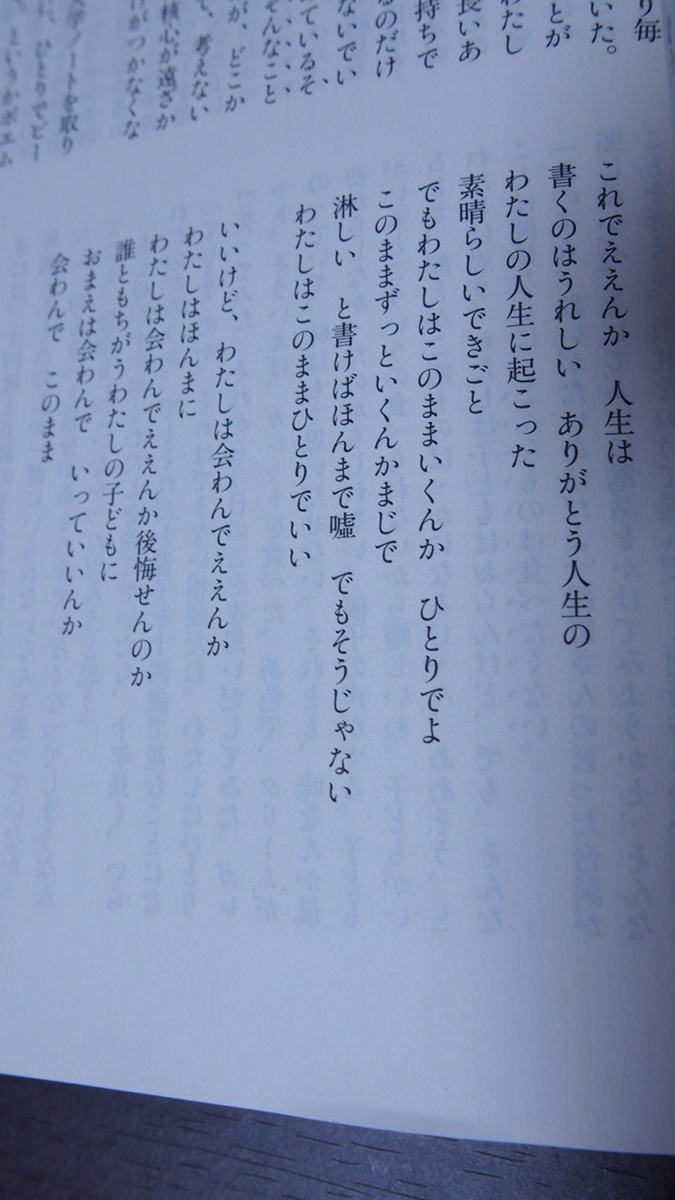 り毎
いた。
ことが
わたし
長いあ
持ちで
るのだけ
ないでい
ているそ
そんなこと
が、どこか
て、考えない
核心が遠ざか
がつかなくな
ノートを取り
に、ひとりでビー
、というかポエム
これでええんか　人生は
書くのはうれしい　ありがとう人生の
わたしの人生に起こった
素晴らしいできごと
でもわたしはこのままいくんか　ひとりでよ
このままずっといくんかまじで
淋しい　と書けばほんまで嘘　でもそうじゃない
わたしはこのままひとりでいい
いいけど、わたしは会わんでええんか
わたしはほんまに
わたしは会わんでええんか後悔せんのか
誰ともちがうわたしの子どもに
おまえは会わんで　いっていいんか
会わんで　このまま